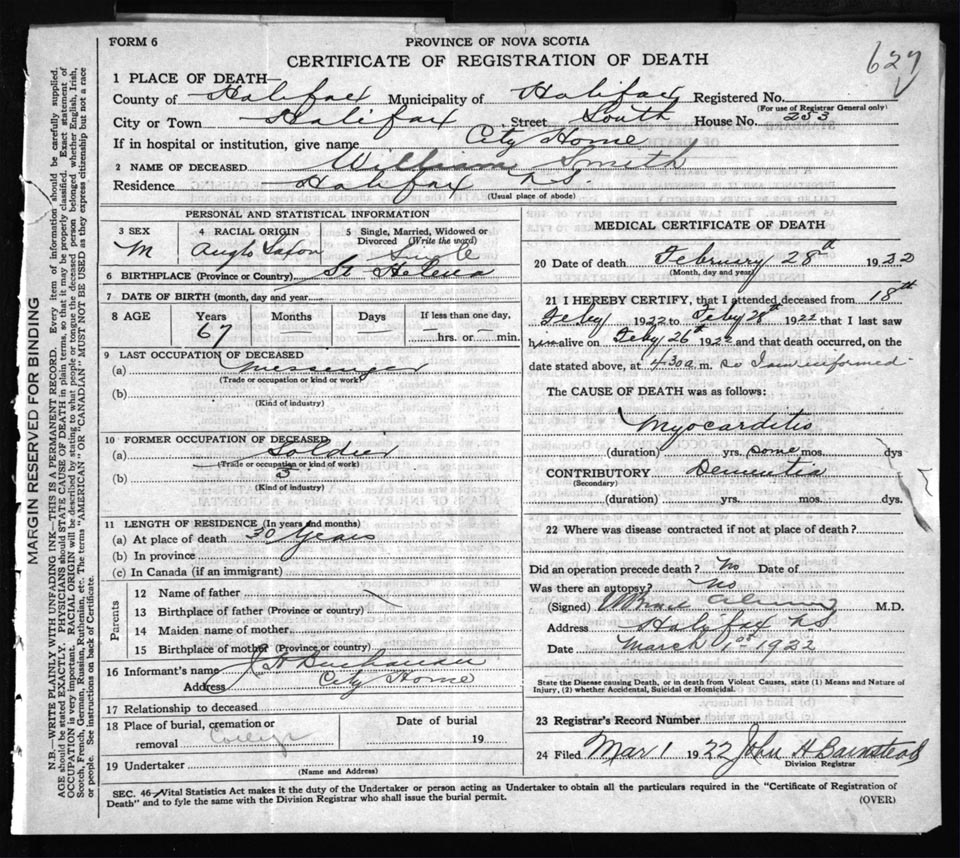 627
FORM 6
PROVINCE OF NOVA SCOTIA
CERTIFICATE OF REGISTRATION OF DEATH
1 PLACE OF DEATH—
County of Halifax Municipality of Halifax Registered No.
(For use of Registrar General only)
City or Town Halifax Street South House No. 253
If in hospital or institution, give name City Home
2 NAME OF DECEASED William Smith
Residence Halifax N.S.
(Usual place of abode)
PERSONAL AND STATISTICAL INFORMATION
3 SEX M
4 RACIAL ORIGIN Anglo Saxon
5 Single, Married, Widowed or Divorced (Write the word) Single
6 BIRTHPLACE (Province or Country) St Helena
7 DATE OF BIRTH (month, day and year)
8 AGE Years Months Days If less than one day,
67 — — — hrs. or — min.
9 LAST OCCUPATION OF DECEASED
(a) messenger
(Trade or occupation or kind or work)
(b)
(Kind of industry)
10 FORMER OCCUPATION OF DECEASED
(a) Soldier
(Trade or occupation or kind of work)
(b)
(Kind of industry)
11 LENGTH OF RESIDENCE (In years and months)
(a) At place of death 30 years
(b) In province
(c) In Canada (if an immigrant)
Parents
12 Name of father
13 Birthplace of father (Province or country)
14 Maiden name of mother
15 Birthplace of mother (Province or country)
16 Informant's name Buchanan
Address City Home
17 Relationship to deceased
18 Place of burial, cremation or removal
Date of burial
19
19 Undertaker
(Name and Address)
MEDICAL CERTIFICATE OF DEATH
20 Date of death February 28th 1922
(Month, day and year)
21 I HEREBY CERTIFY, that I attended deceased from 18th
Feby 1922 to Feby 28th 1922 that I last saw
him alive on Feby 26th 1922 and that death occurred, on the
date stated above, at 4.30 a. m. so I am informed
The CAUSE OF DEATH was as follows:
Myocarditis
(duration) yrs. some mos. dys
CONTRIBUTORY Dementia
(Secondary)
(duration) yrs. mos. dys.
22 Where was disease contracted if not at place of death?
Did an operation precede death? No Date of
Was there an autopsy? No
(Signed) M.D.
Address Halifax N.S.
Date March 1st 1922
State the Disease causing Death, or in death from Violent Causes, state (1) Means and Nature of
Injury, (2) whether Accidental, Suicidal or Homicidal.
23 Registrar's Record Number
24 Filed Mar 1 1922 John H Barnstead
Division Registrar
SEC. 46—Vital Statistics Act makes it the duty of the Undertaker or person acting as Undertaker to obtain all the particulars required in the "Certificate of Registration of
Death" and to fyle the same with the Division Registrar who shall issue the burial permit.
(OVER)
MARGIN RESERVED FOR BINDING
N.B.—WRITE PLAINLY WITH UNFADING INK—THIS IS A PERMANENT RECORD. Every item of information should be carefully supplied.
AGE should be stated EXACTLY. PHYSICIANS should STATE CAUSE OF DEATH in plain terms, so that it may be properly classified. Exact statement of
OCCUPATION is very important. RACIAL ORIGIN will be described by stating to what people or tongue the deceased person belonged, whether English, Irish,
Scotch, French, German, Russian, Ruthenian, etc. The terms "AMERICAN" or "CANADIAN" MUST NOT BE USED as they express citizenship but not a race
or people. See instructions on back of Certificate.